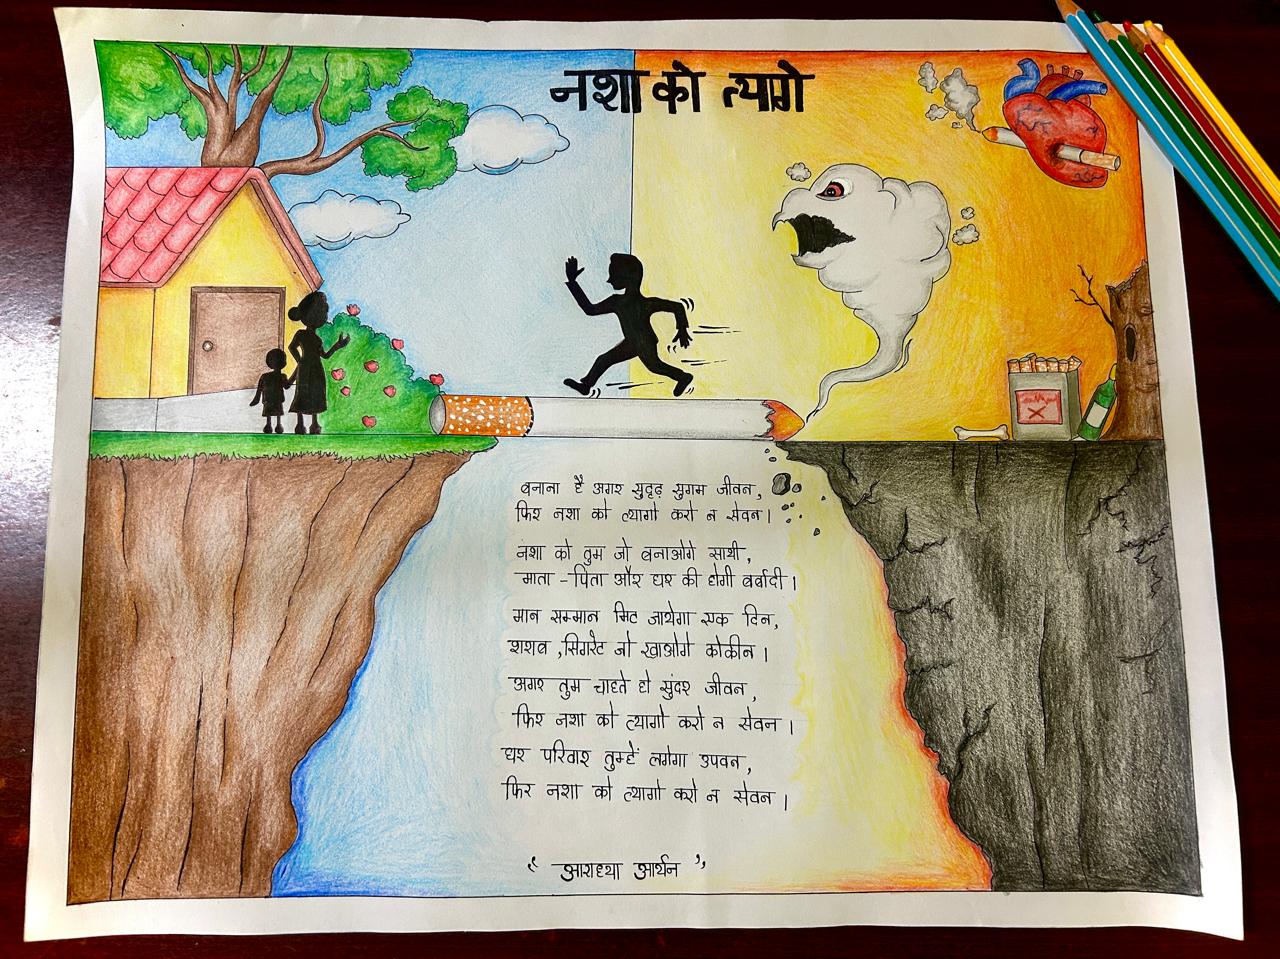 नशा को त्यागे
बनाना है अगर सुदृढ़ सुगम जीवन,
फिर नशा को त्यागो करो न सेवन।
नशा को तुम जो बनाओगे साथी,
माता - पिता और घर की होगी बर्बादी।
मान सम्मान मिट जायेगा एक दिन,
शराब ,सिगरेट जो खाओगे कोकीन।
अगर तुम चाहते हो सुंदर जीवन,
फिर नशा को त्यागो करो न सेवन।
घर परिवार तुम्हें लगेगा उपवन,
फिर नशा को त्यागो करो न सेवन।
“ आराध्या आर्यन ”